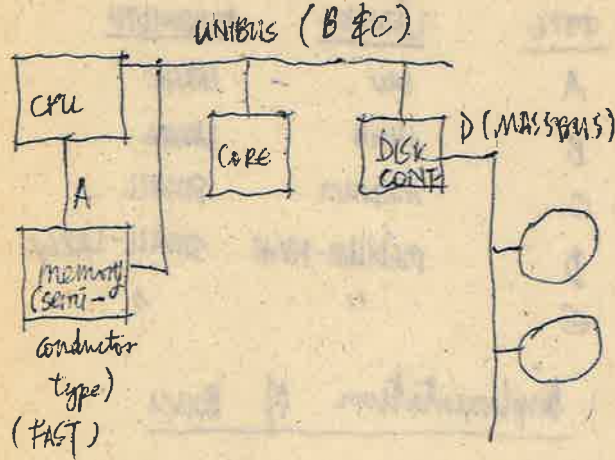 UNIBUS (B & C)
CPU
CORE
DISK
CONT.
D (MASSBUS)
A
memory
(semi-
conductor
type)
(FAST)